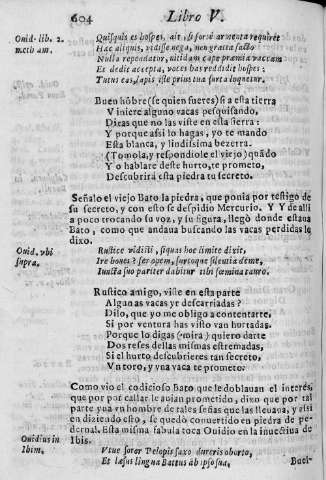 604 Libro V.
Ouid. lib. 2.
metb am.
Quisquis es hospes, ait, si forte armenta requiret
Hac aliquis, vidisse nega, neu gratia facto
Nulla rependatur, nitidam cape præmia vaccam
Et dedit accepta, voces has reddidit hospes:
Tutus eas, lapis iste prius tua furta loquetur.
Buen hōbre (se quien fueres) si a esta tierra
Viniere alguno vacas pesquisando,
Dicas que no las viste en esta sierra:
Y porque assi lo hagas, yo te mando
Esta blanca, y lindissima bezerra.
(Tomola, y respondiole el viejo) quādo
Yo hablare deste hurto, te prometo,
Descubrirá esta piedra tu secreto.
Señalo el viejo Bato la piedra, que ponia por testigo de
su secreto, y con esto se despidio Mercurio. Y Y de alli
a poco trocando su voz, y su figura, llegò donde estaua
Bato, como que andaua buscando las vacas perdidas le
dixo.
Ouid. vbi
supra.
Rustice vidisti, siquas hoc limite dixit,
Ire boues? fer opem, furtoque silentia deme,
Iuncta suo pariter dabitur tibi fœmina tauro.
Rustico amigo, viste en esta parte
Algunas vacas yr descarriadas?
Dilo, que yo me obligo a contentarte,
Si por ventura has visto van hurtadas.
Porque lo digas (mira) quiero darte
Dos reses dellas mismas estremadas,
Si el hurto descubrieres tan secreto,
Vn toro, y vna vaca te prometo.
Como vio el codicioso Bato que le doblauan el interés,
que por por callar le auian prometido, dixo que por tal
parte yua vn hombre de tales señas que las lleuaua, y assi
en diziendo esto, se quedó conuertido en piedra de pe-
dernal. Esta misma fabula toca Ouidio en la inuectiua de
Ibis.
Ouidius in
Ibim.
Vtue soror Pelopis saxo dureris oborto,
Et læsus lingua Battus ab ipse sua.
Buel-